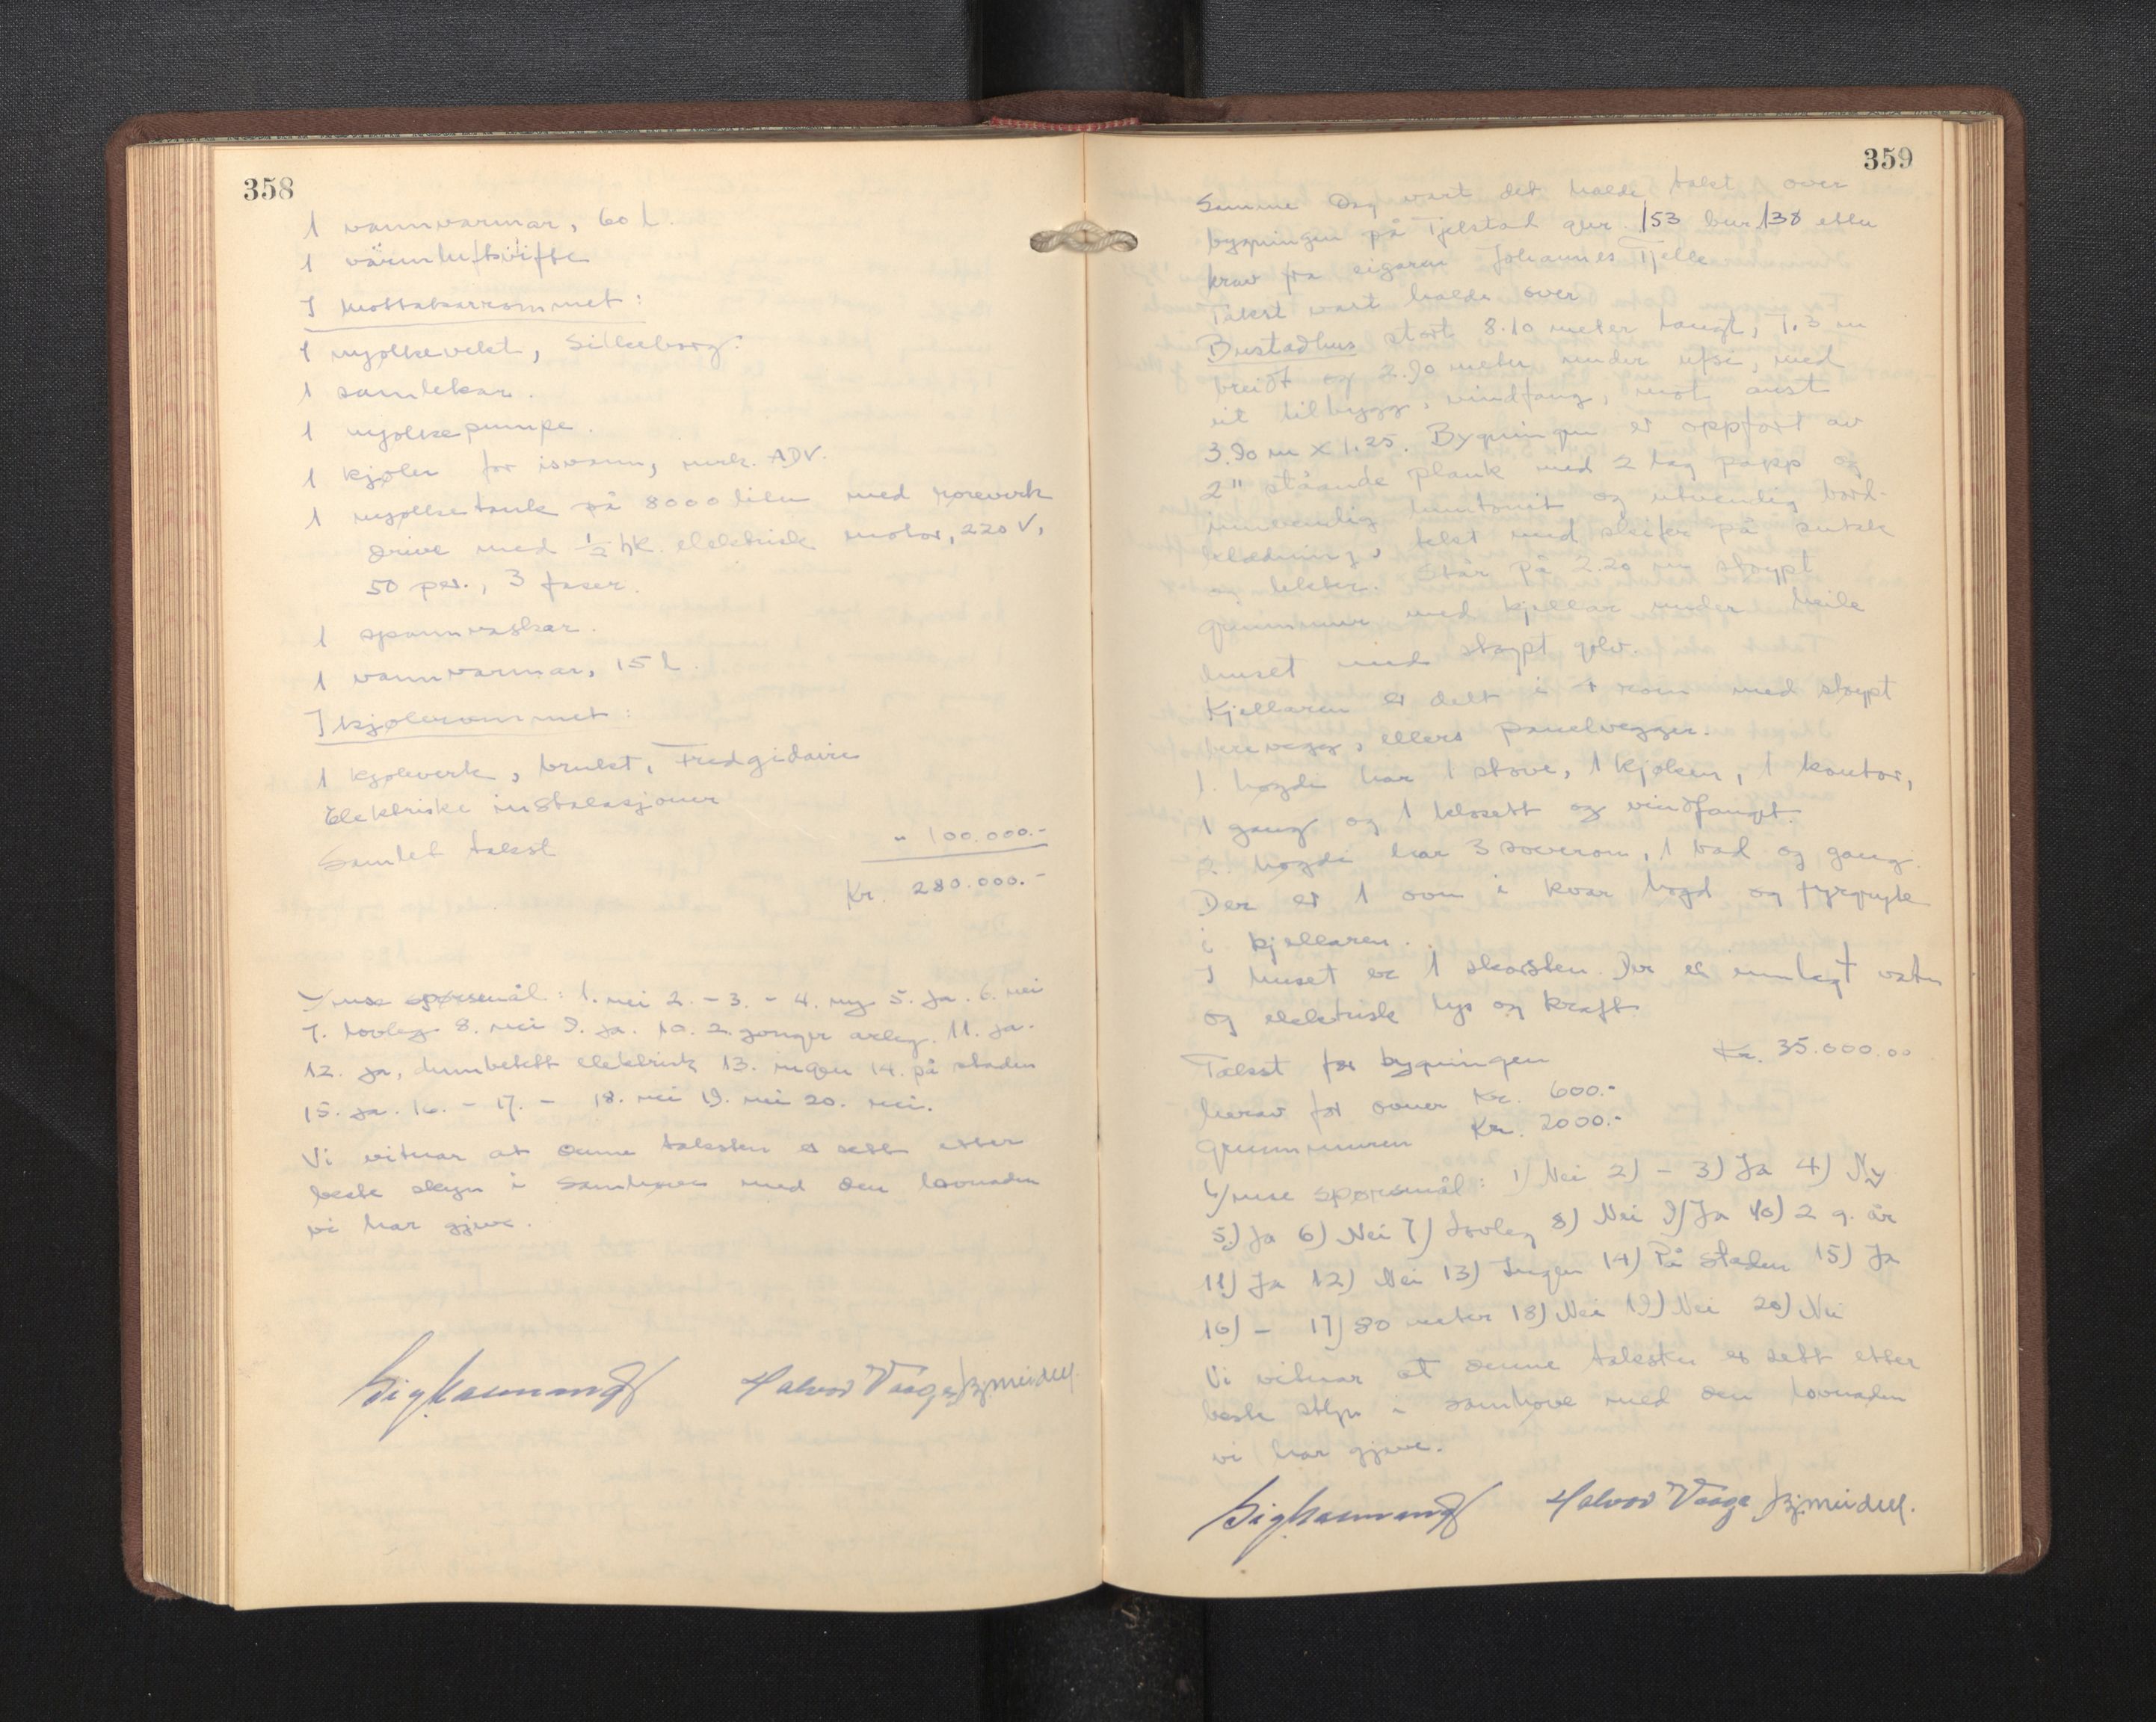 358
1 vannvarmar, 60 L.
1 varmluftsvifte
I mottakarrommet:
1 mjølkevekt, Silkeborg.
1 samlekar.
1 mjølkepumpe.
1 kjøler for isvann, merk. ADV.
1 mjølketank på 8000 liter med rørewerk
drive med ½ hk. elektrisk motor, 220 V,
50 per., 3 faser.
1 spannvaskar.
1 vannvarmar, 15 L.
I kjølerommet:
1 kjøleverk, brukt, Fredgidaire
Elektriske installasjoner " 100.000.-
Samlet takst Kr. 280.000.-
Ymse spørsmål: 1. nei 2. - 3. - 4. ny 5. Ja. 6. nei
7. lovleg 8. nei 9. Ja. 10. 2 gonger årleg. 11. Ja.
12. Ja, elektrisk 13. ingen 14. på staden
15. Ja. 16. - 17. - 18. nei 19. nei 20. nei.
Vi vitnar at denne taksten er sett etter
beste skjyn i samhøve med den lovnaden
vi har gjeve.
Halvor Vaage
359
Samme dag vart det halde takst over
bygningen på Tjelstad gnr. 153 bnr 138 etter
krav fra eigaren Johannes Tjelle
Takst vart halde over
Bustadhus stort 8.10 meter langt, 7.3 m
breidt og 2.90 meter under ufsi, med
eit tilbygg, vindfang, mot aust
3.90 m x 1.25. Bygningen er oppført av
2" ståande plank med 2 lag papp og
innvendig huntonit og utvendig bord-
kledning, tekt med skifer på sutak
og lekter. Står på 2.20 m støypt
grunnmur med kjellar under heile
huset med støypt golv.
Kjellaren er delt i 4 rom med støypt
berevegg, ellers panelvegger.
1. høgde har 1 stove, 1 kjøken, 1 kontor,
1 gang og 1 klosett og vindfanget.
2. høgde har 3 soverom, 1 bad og gang.
Der er 1 ovn i kvar høgd og fyrgryte
i kjellaren.
I huset er 1 skorsten. Der er innlagt vatn
og elektrisk lys og kraft
Takst for bygningen Kr. 35.000.00
herav for ovner Kr. 600.-
Grunnmuren Kr. 2000.-
Ymse spørsmål: 1) Nei 2) - 3) Ja 4) Ny
5) Ja 6) Nei 7) Lovleg 8) Nei 9) Ja 10) 2 g. år
11) Ja 12) Nei 13) Ingen 14) På staden 15) Ja
16) - 17) 80 meter 18) Nei 19) Nei 20) Nei
Vi vitnar at denne taksten er sett etter
beste skjyn i samhøve med den lovnaden
vi har gjeve.
Halvor Vaage